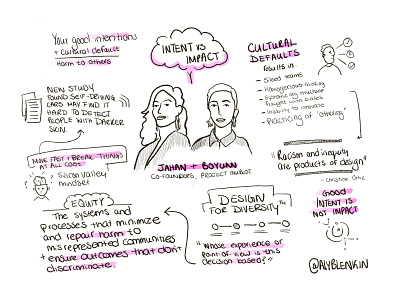 Your good intentions
+ Cultural default
Harm to others
INTENT VS
IMPACT
CULTURAL
DEFAULTS
results in...
- Siloed teams
- Homogenous thinking
- Inability to innovate
- Practicing of 'othering'
NEW STUDY
FOUND SELF-DRIVING
CARS MAY FIND IT
HARD TO DETECT
PEOPLE WITH DARKER
SKIN.
MOVE FAST + BREAK THINGS
AT ALL COST
Silicon Valley
mindset
JAHAN + BOYUAN
CO-FOUNDERS, PRODUCT
"Racism and inequity
are products of design"
GOOD
INTENT IS
NOT IMPACT
EQUITY
The systems and
processes that minimize
and repair harm to
misrepresented communities
+ ensure outcomes that don't
discriminate.
DESIGN
FOR DIVERSITY™
"Whose experience or
point of view is this
decision based?"
@ALYBLENKIN